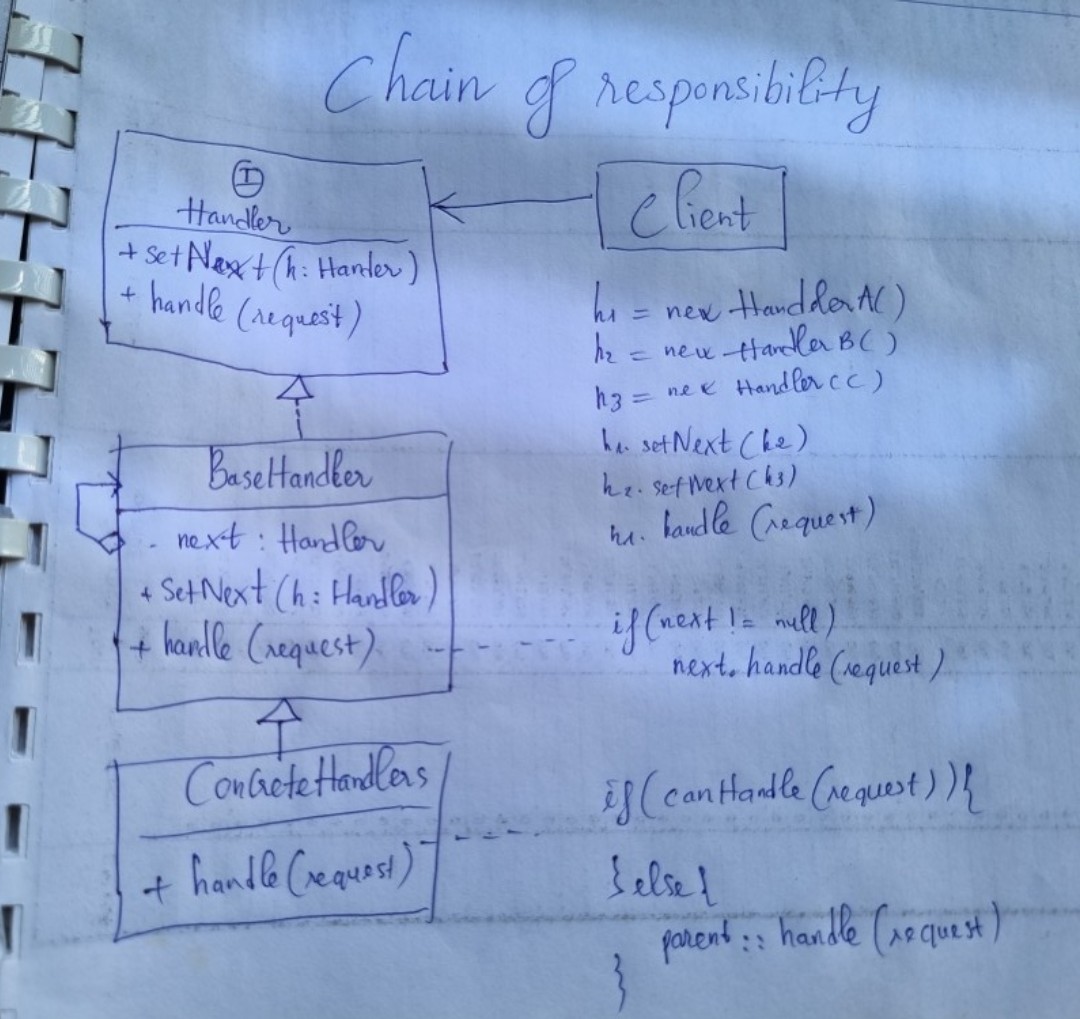 Chain of responsibility
I
Handler
+ setNext(h: Hander)
+ handle (request)
Client
h1 = new HanddlerA()
h2 = new HandlerB()
h3 = new HandlerCC)
h1. setNext(h2)
h2. setNext(h3)
h1. handle (request)
BaseHandler
- next : Handler
+ SetNext(h: Handler)
+ handle (request)
if(next != null)
next. handle(request)
ConcreteHandlers
+ handle(request)
if(canHandle(request)){
}else{
parent :: handle (request)
}